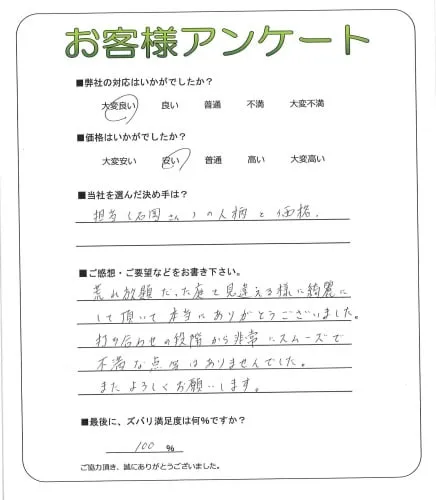 お客様アンケート
■弊社の対応はいかがでしたか？
大変良い 良い 普通 不満 大変不満
■価格はいかがでしたか？
大変安い 安い 普通 高い 大変高い
■当社を選んだ決め手は？
担当（石岡さん）の人柄と価格．
■ご感想・ご要望などをお書き下さい。
荒れ放題だった庭を見違える様に綺麗に
して頂いて本当にありがとうございました。
打ち合わせの段階から非常にスムーズで
不満な点等はありませんでした。
またよろしくお願いします。
■最後に、ズバリ満足度は何％ですか？
100 ％
ご協力頂き、誠にありがとうございました。